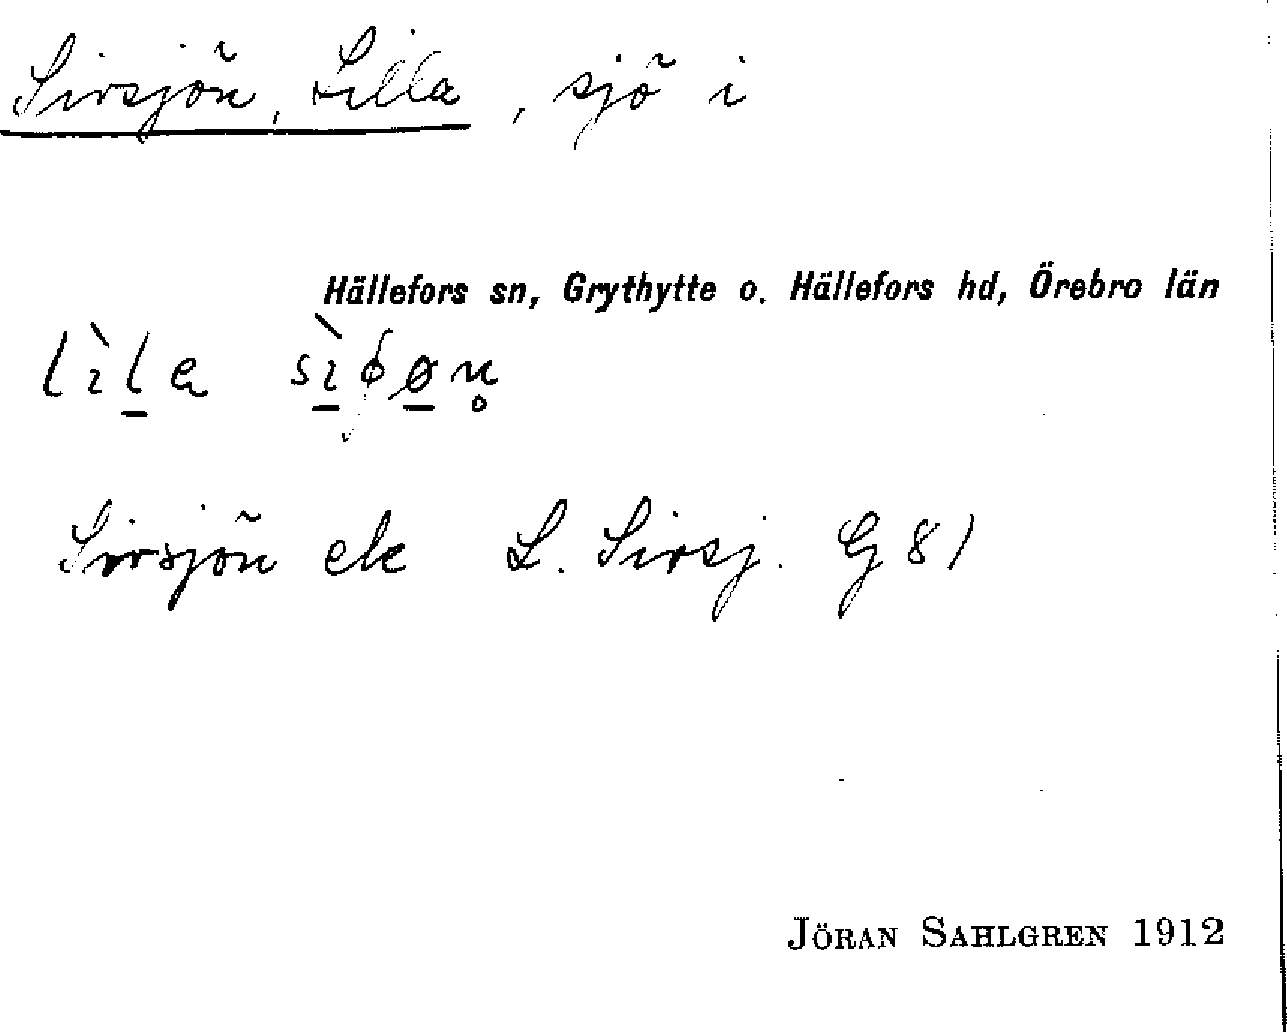 Sirsjön, Lilla, sjö i
Hällefors sn, Grythytte o. Hällefors hd, Örebro län
Sirsjön ek L. Sirsj. G 81
JÖRAN SAHLGREN 1912